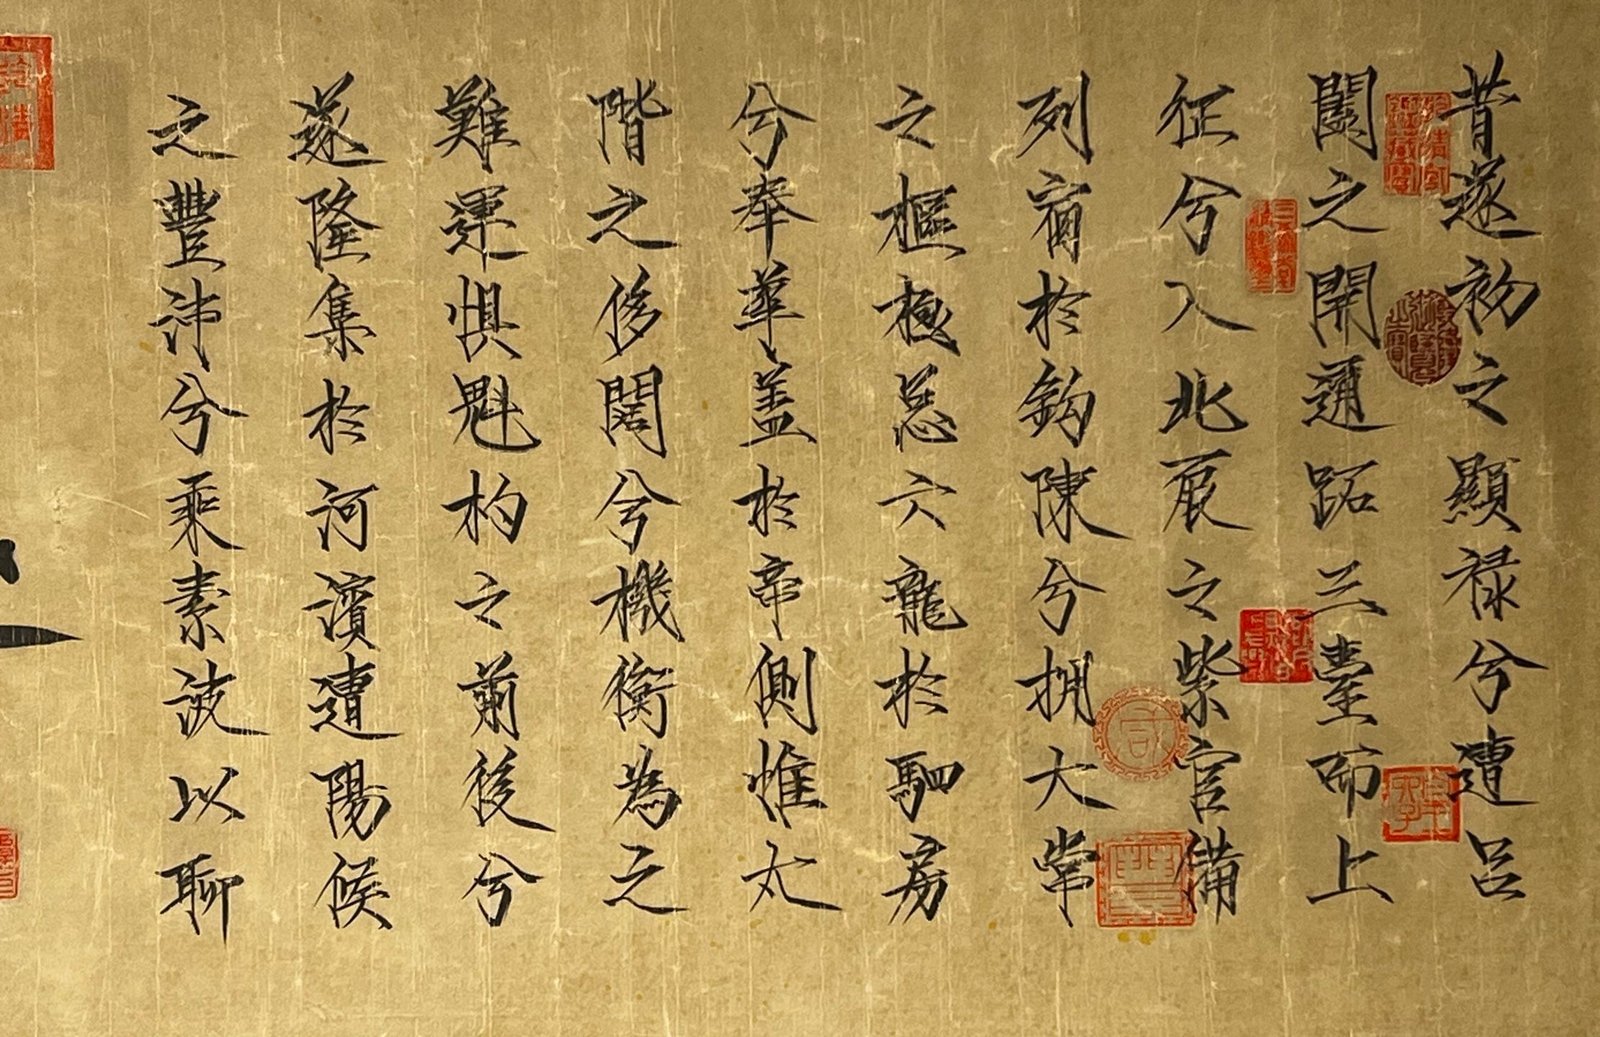 昔遂初之顯祿兮遭呂
闕之開通跖三臺而上
征兮入北辰之紫宮備
列宿於鉤陳兮拥大常
之樞極總六龍於駟房
兮奉華盖於帝側惟太
階之侈闊兮機衡為之
難運懼魁杓之前後兮
遂隆集於河濱遭陽候
之豐沛兮乘素波以聊